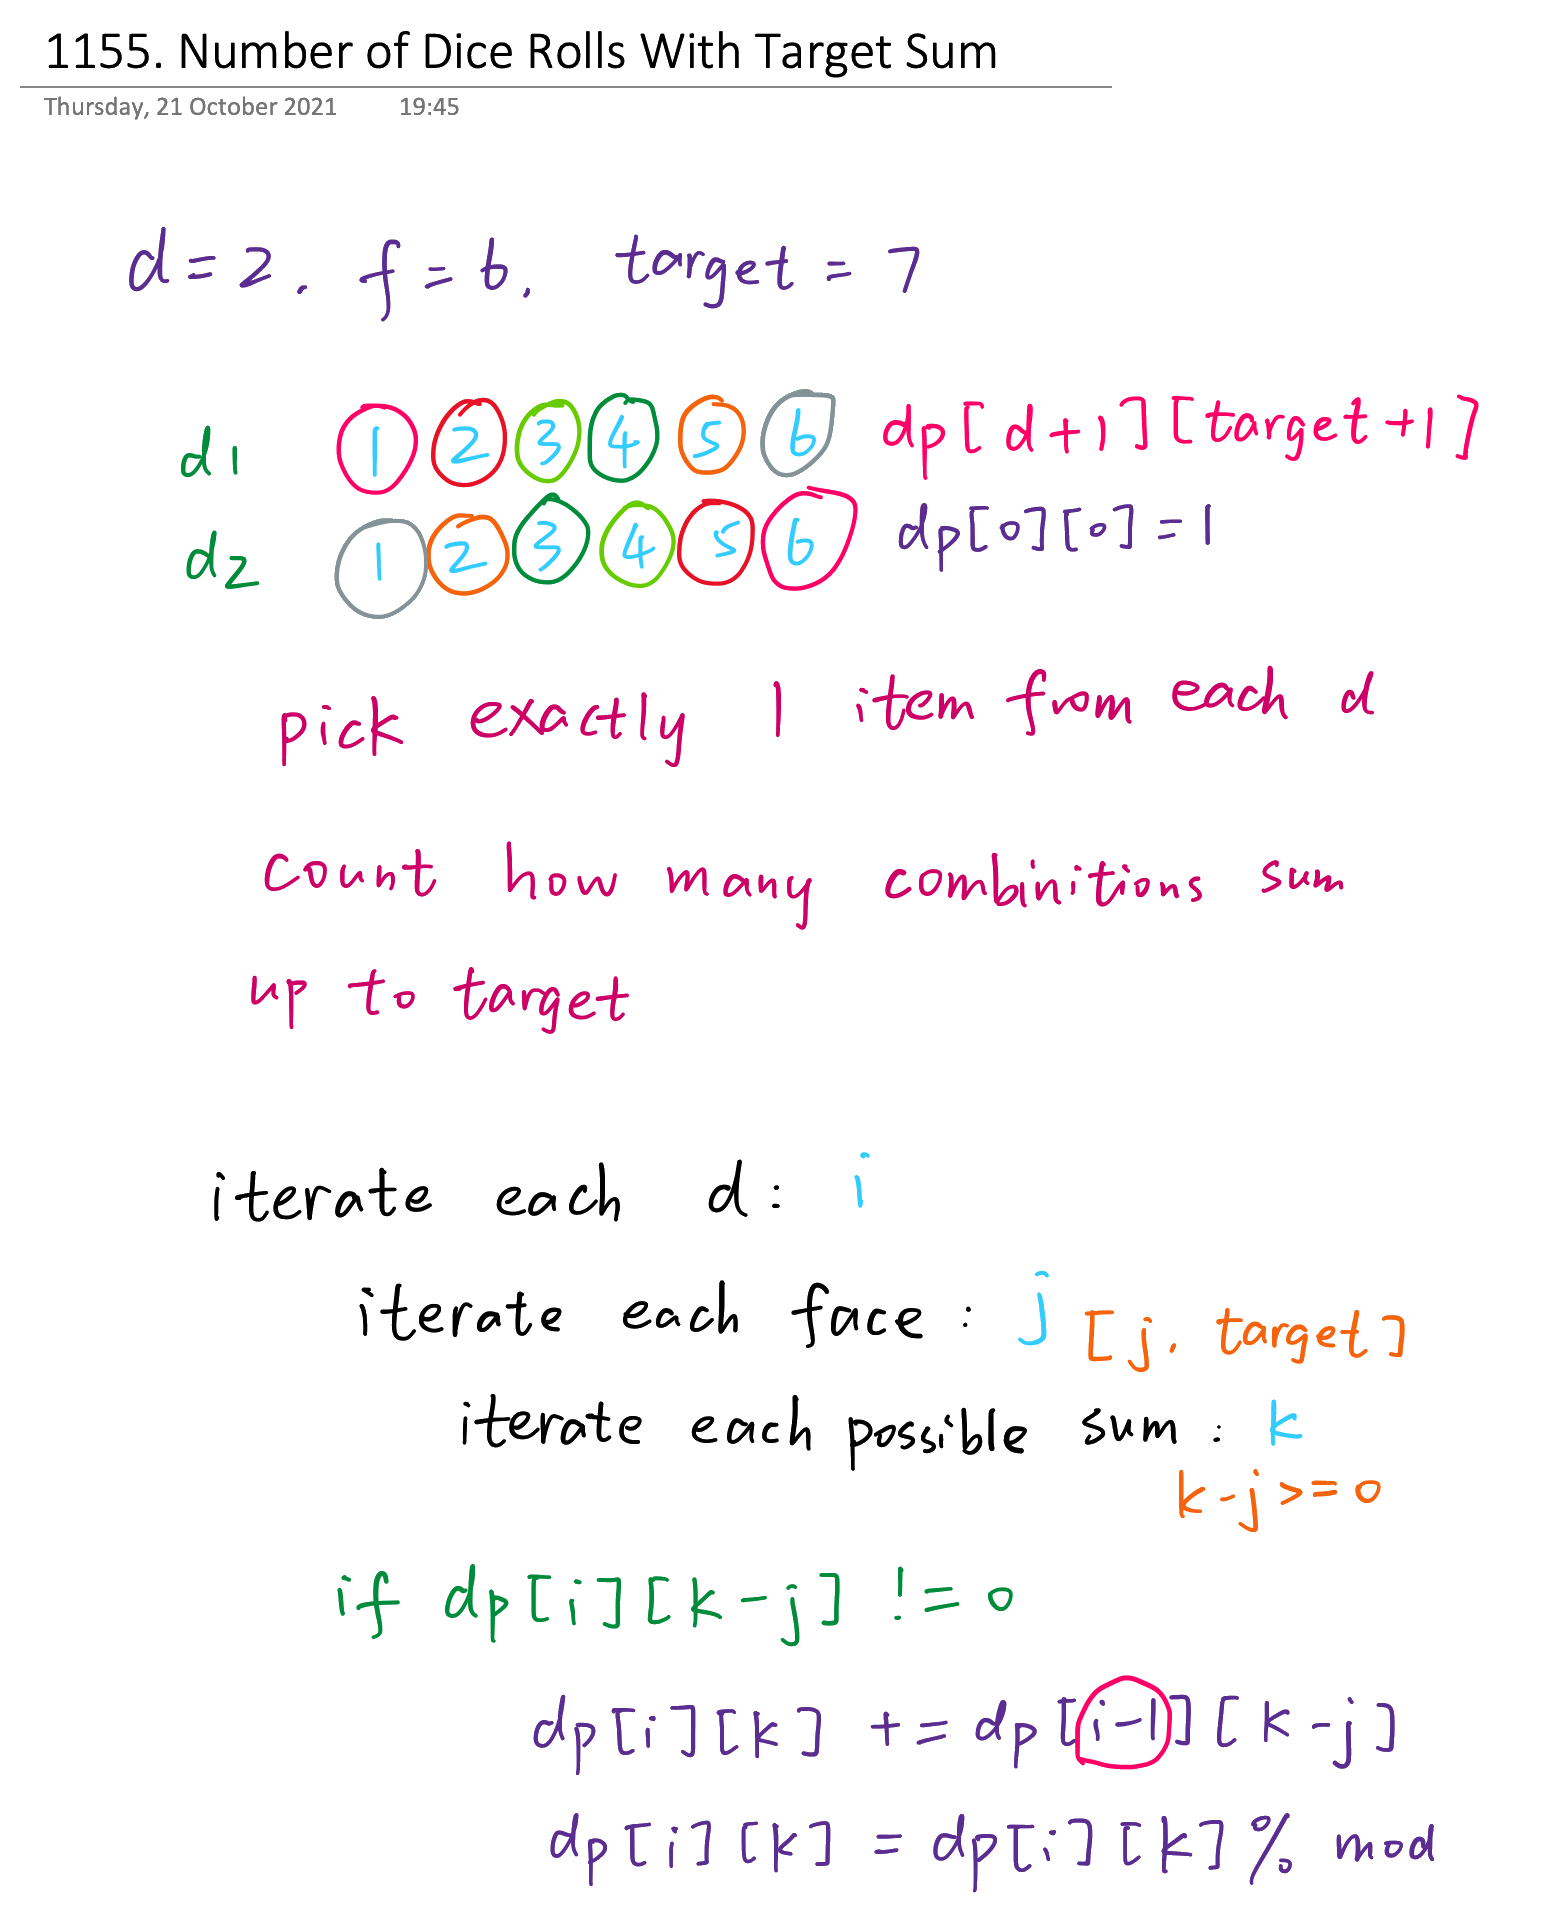 1155. Number of Dice Rolls With Target Sum
Thursday, 21 October 2021 19:45
d = 2. f = 6. target = 7
d1 1 2 3 4 5 6 dp[d+1][target+1]
d2 1 2 3 4 5 6 dp[0][0] = 1
pick exactly 1 item from each d
count how many combinitions sum
up to target
iterate each d: i
iterate each face: j [j. target]
iterate each possible sum: k
k-j >= 0
if dp[i][k-j] != 0
dp[i][k] += dp[i-1][k-j]
dp[i][k] = dp[i][k] % mod